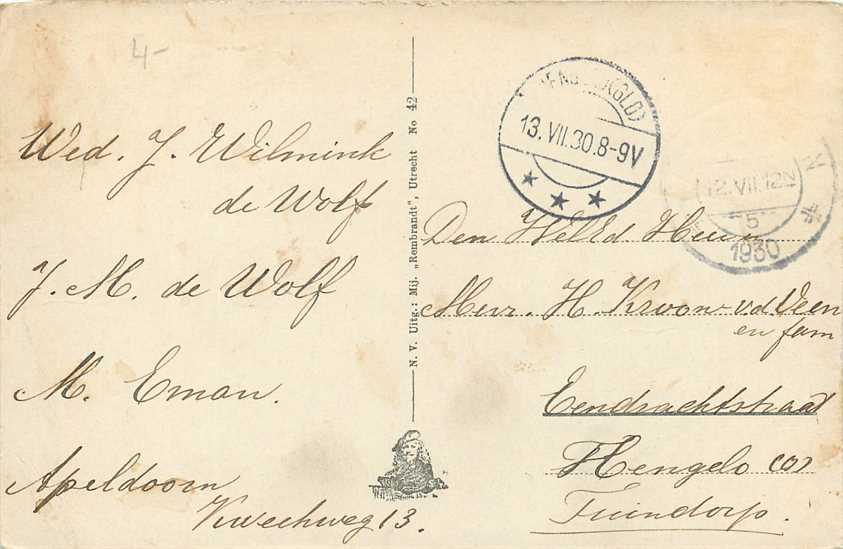 4-
Wed. J. Wilmink
de Wolf
J. M. de Wolf
M. Eman.
Apeldoorn
Kweekweg 13.
N. V. Uitg.: Mij. „Rembrandt", Utrecht No 42
(GLD)
13.VII.30.8-9V
12.VII.12N
5
1930
Den WelEd Heer
Mevr. H. Kroon v.d Veen
en fam
Eendrachtstraat
Hengelo (O)
Tuindorp.